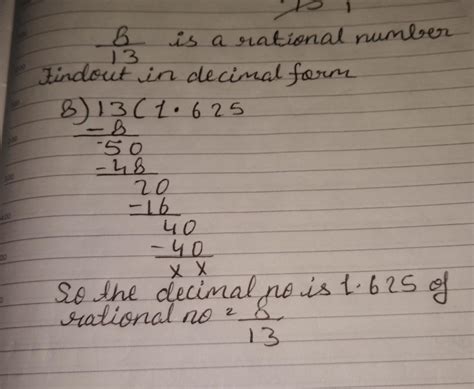 8/13 is a rational number
Findout in decimal form
8)13(1.625
-8
50
-48
20
-16
40
-40
x x
So the decimal no is 1.625 of
rational no = 8/13